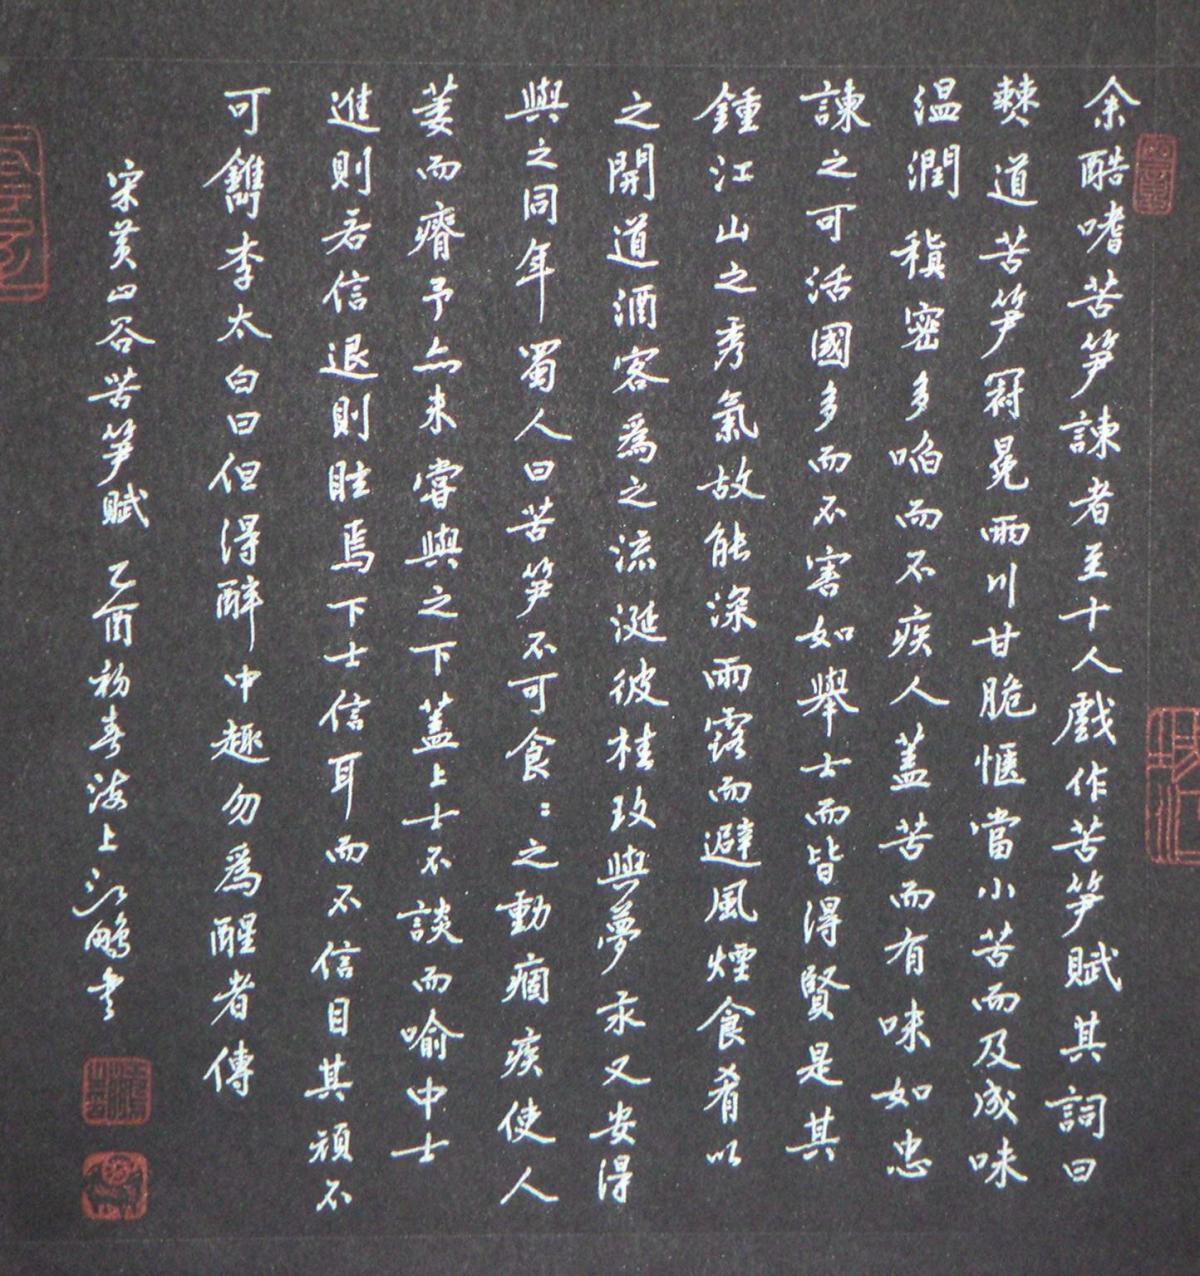 余酷嗜苦笋諫者至十人戲作苦笋賦其詞曰
僰道苦笋冠冕兩川甘脆愜當小苦而及成味
温潤稹密多啗而不疾人蓋苦而有味如忠
諫之可活國多而不害如舉士而皆得賢是其
鍾江山之秀氣故能深雨露而避風煙食肴以
之開道酒客為之流涎彼桂玫與夢汞又安得
與之同年蜀人曰苦笋不可食:之動痼疾使人
萎而瘠予亦未嘗與之下蓋上士不談而喻中士
進則若信退則眩焉下士信耳而不信目其頑不
可鐫李太白曰但得醉中趣勿為醒者傳
宋黃山谷苦笋賦 乙酉初春海上江鵬書